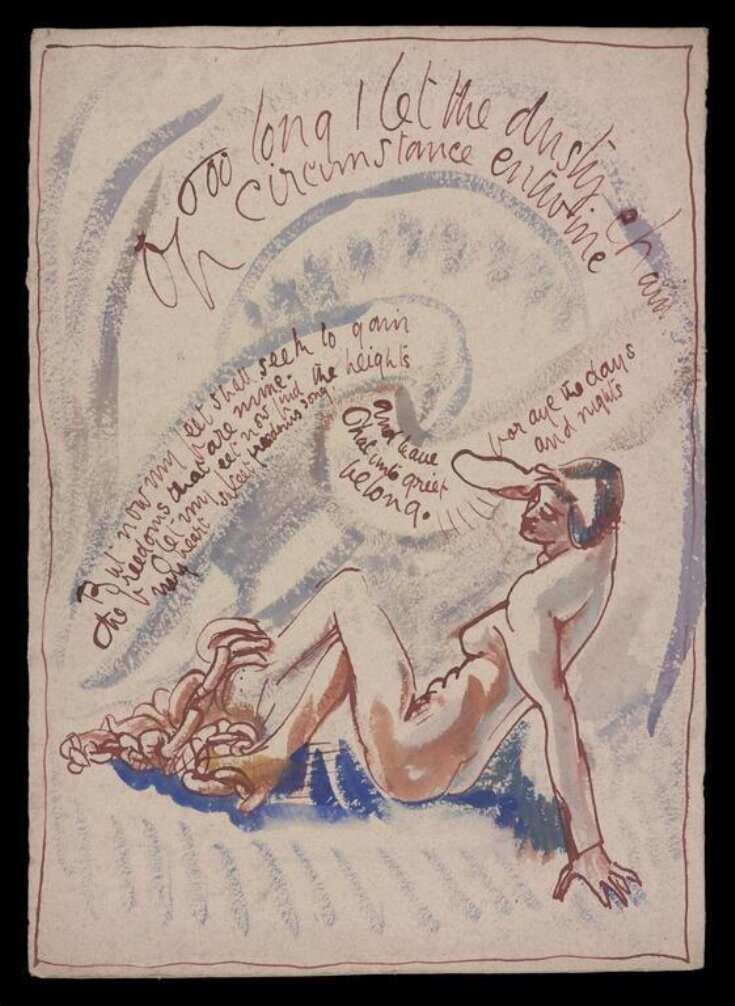 Too long I let the dusty chain
Of circumstance entwine
But now my feet shall seek to gain
the freedoms that are mine.
let my feet now find the heights
my heart sweet freedoms song.
and leave
for aye the days
and nights
that unto grief
belong.